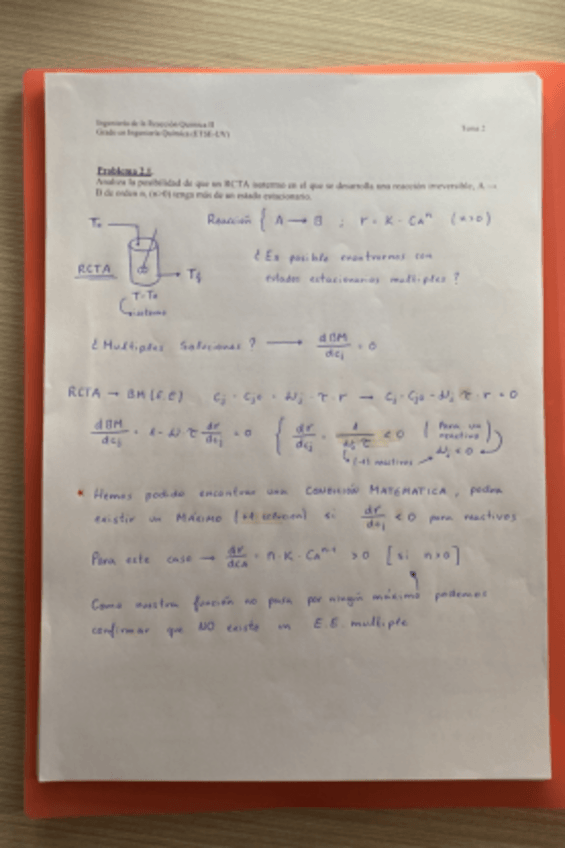 Ingeniería de la Reacción Química II
Grado en Ingeniería Química (ETSE-UV)
Tema 2
Problema 2.1.
Analiza la posibilidad de que un RCTA isotermo en el que se desarrolla una reacción irreversible, A →
B de orden n, (n>0) tenga más de un estado estacionario.
Reacción { A → B ; r = K · CA^n (n>0)
To
RCTA
Tf
T = To
isotermo
¿Es posible encontrarnos con
estados estacionarios multiples?
¿Multiples Soluciones? → dBM/dcj = 0
RCTA → BM (E.E) Cj = Cjo + νj · τ · r → Cj - Cjo - νj τ · r = 0
dBM/dcj = 1 - νj τ dr/dcj = 0 { dr/dcj = 1/(νj τ) < 0 (Para un reactivo) νj < 0
(-1) reactivos
* Hemos podido encontrar una CONDICIÓN MATEMATICA, podrá
existir un MÁXIMO ( solucion) si dr/dcj < 0 para reactivos
Para este caso → dr/dcA = n · K · CA^n-1 > 0 [si n>0]
Como nuestra función no pasa por ningún máximo podemos
confirmar que NO existe un E.E. multiple